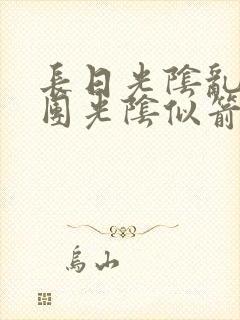 長日光陰亂
園光陰似箭
烏山